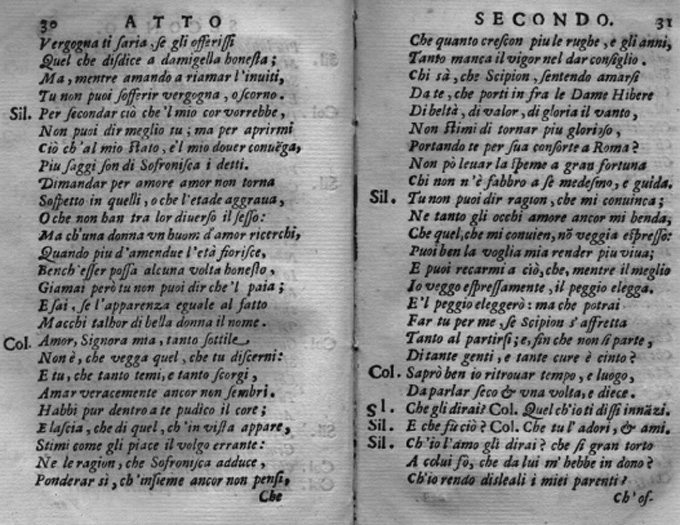 30 ATTO
Vergogna ti saria, se gli offerissi
Quel che disdice a damigella honesta;
Ma, mentre amando a riamar l'inuiti,
Tu non puoi sofferir vergogna, o scorno.
Sil. Per secondar ciò che 'l mio cor vorrebbe,
Non puoi dir meglio tu; ma per aprirmi
Ciò ch'al mio stato, e 'l mio douer conuẽga,
Piu saggi son di Sofronisca i detti.
Dimandar per amore amor non torna
Sospetto in quelli, o che l'etade aggraua,
O che non han tra lor diuerso il sesso:
Ma ch'una donna vn huom d'amor ricerchi,
Quando piu d'amendue l'età fiorisce,
Bench'esser possa alcuna volta honesto,
Giamai però tu non puoi dir che 'l paia;
E sai, se l'apparenza eguale al fatto
Macchi talhor di bella donna il nome.
Col. Amor, Signora mia, tanto sottile
Non è, che vegga quel, che tu discerni:
E tu, che tanto temi, e tanto scorgi,
Amar veracemente ancor non sembri.
Habbi pur dentro a te pudico il core;
E lascia, che di quel, ch'in vista appare,
Stimi come gli piace il volgo errante:
Ne le ragion, che Sofronisca adduce,
Ponderar sì, ch'insieme ancor non pensi,
Che
SECONDO. 31
Che quanto crescon piu le rughe, e gli anni,
Tanto manca il vigor nel dar consiglio.
Chi sà, che Scipion, sentendo amarsi
Da te, che porti in fra le Dame Hibere
Di beltà, di valor, di gloria il vanto,
Non stimi di tornar piu glorioso,
Portando te per sua consorte a Roma?
Non pò leuar la speme a gran fortuna
Chi non n'è fabbro a se medesmo, e guida.
Sil. Tu non puoi dir ragion, che mi conuinca;
Ne tanto gli occhi amore ancor mi benda,
Che quel, che mi conuien, nõ veggia espresso:
Puoi ben la voglia mia render piu viua;
E puoi recarmi a ciò, che, mentre il meglio
Io veggo espressamente, il peggio elegga.
E 'l peggio eleggerò: ma che potrai
Far tu per me, se Scipion s'affretta
Tanto al partirsi; e, fin che non si parte,
Di tante genti, e tante cure è cinto?
Col. Saprò ben io ritrouar tempo, e luogo,
Da parlar seco & una volta, e diece.
Sil. Che gli dirai? Col. Quel ch'io ti dissi innãzi.
Sil. E che fù ciò? Col. Che tu l'adori, & ami.
Sil. Ch'io l'amo gli dirai? che sì gran torto
A colui fò, che da lui m'hebbe in dono?
Ch'io rendo disleali i miei parenti?
Ch'of-